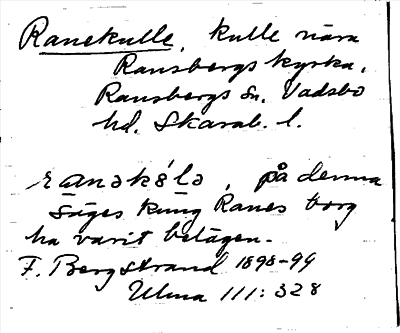 Ranekulle, kulle nära
Ransbergs kyrka,
Ransbergs sn. Vadsbo
hd. Skarab. l.
ránək8́lə, på denna
säges kung Ranes borg
ha varit belägen.
F. Bergstrand 1898-99
Ulma 111:328